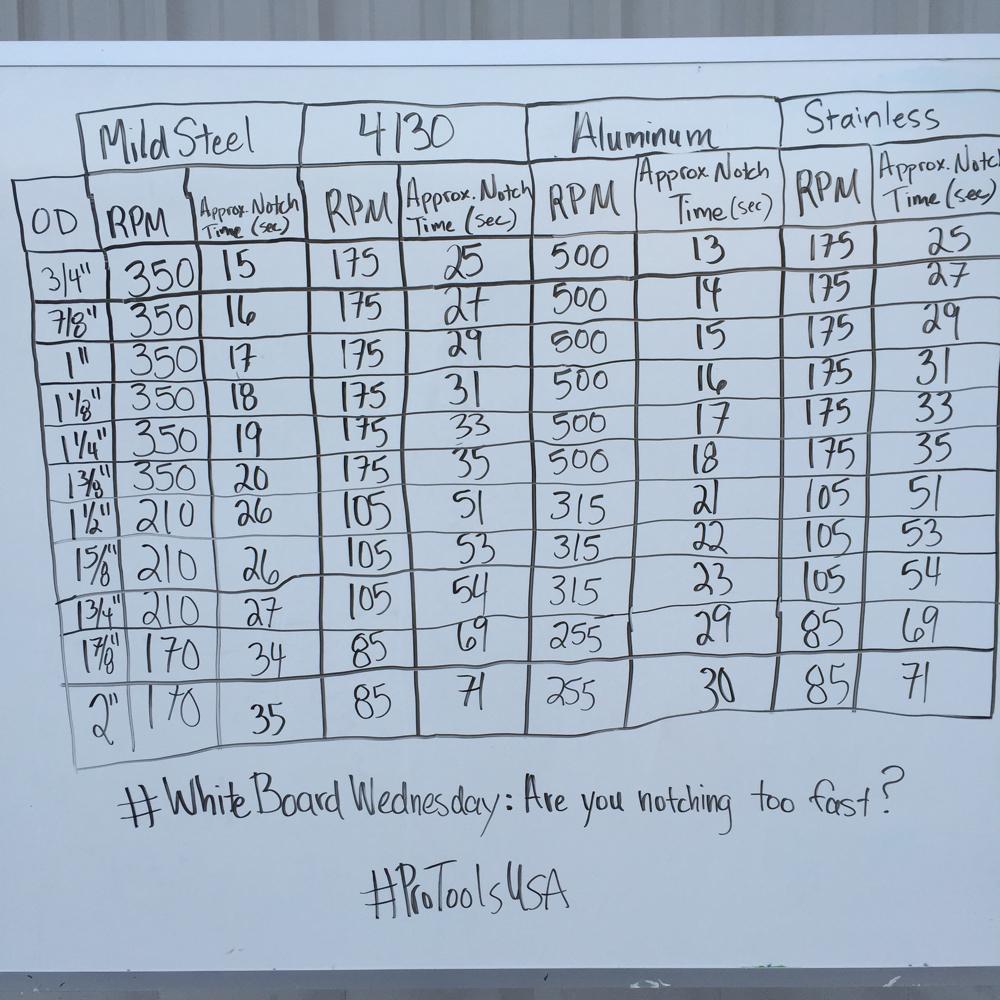 Mild Steel 4130 Aluminum Stainless
OD RPM Approx. Notch Time (sec) RPM Approx. Notch Time (sec) RPM Approx. Notch Time (sec) RPM Approx. Notch Time (sec)
3/4" 350 15 175 25 500 13 175 25
7/8" 350 16 175 27 500 14 175 27
1" 350 17 175 29 500 15 175 29
1 1/8" 350 18 175 31 500 16 175 31
1 1/4" 350 19 175 33 500 17 175 33
1 3/8" 350 20 175 35 500 18 175 35
1 1/2" 210 26 105 51 315 21 105 51
1 5/8" 210 26 105 53 315 22 105 53
1 3/4" 210 27 105 54 315 23 105 54
1 7/8" 170 34 85 69 255 29 85 69
2" 170 35 85 71 255 30 85 71
#WhiteBoardWednesday: Are you notching too fast?
#ProToolsUSA